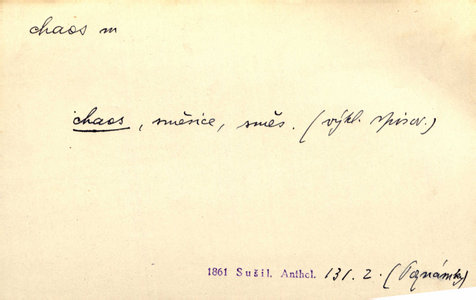 chaos m
chaos, směsice, směs. (výkl. spisov.)
1861 Sušil. Anthol. 131. 2. (Poznámky)